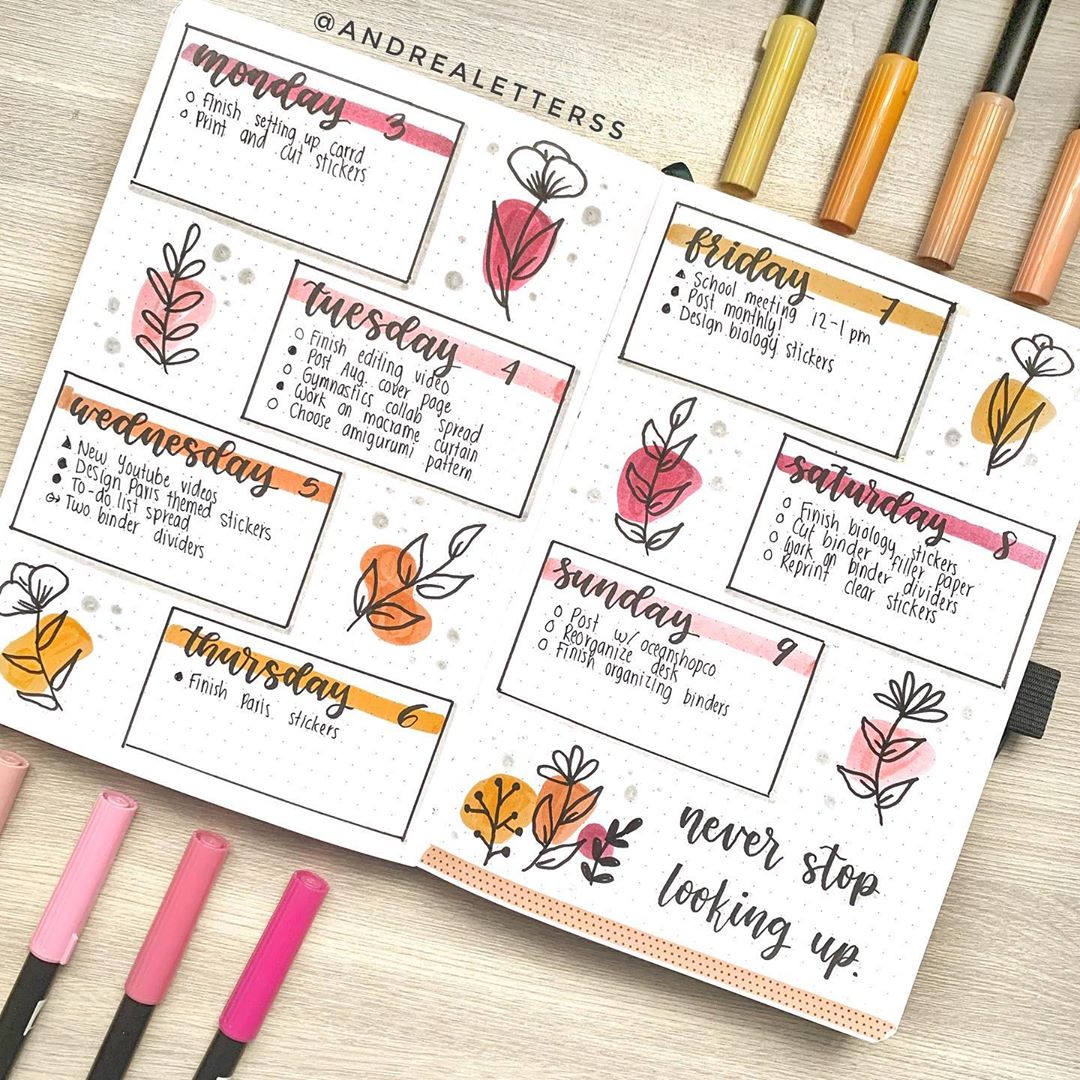 @ANDREALETTERSS
monday 3
Finish setting up carrd
Print and cut stickers
tuesday 4
Finish editing video
Post Aug. cover page
Gymnastics collab spread
Work on macrame curtain
Choose amigurumi pattern
wednesday 5
New Youtube videos
Design Paris themed stickers
To-do list spread
Two binder dividers
thursday 6
Finish Paris stickers
friday 7
School meeting 12-1 pm
Post monthly!
Design biology stickers
saturday 8
Finish biology stickers
Cut binder filler paper
Work on binder dividers
Reprint clear stickers
sunday 9
Post w/ oceanshopco
Reorganize desk
Finish organizing binders
never stop
looking up.